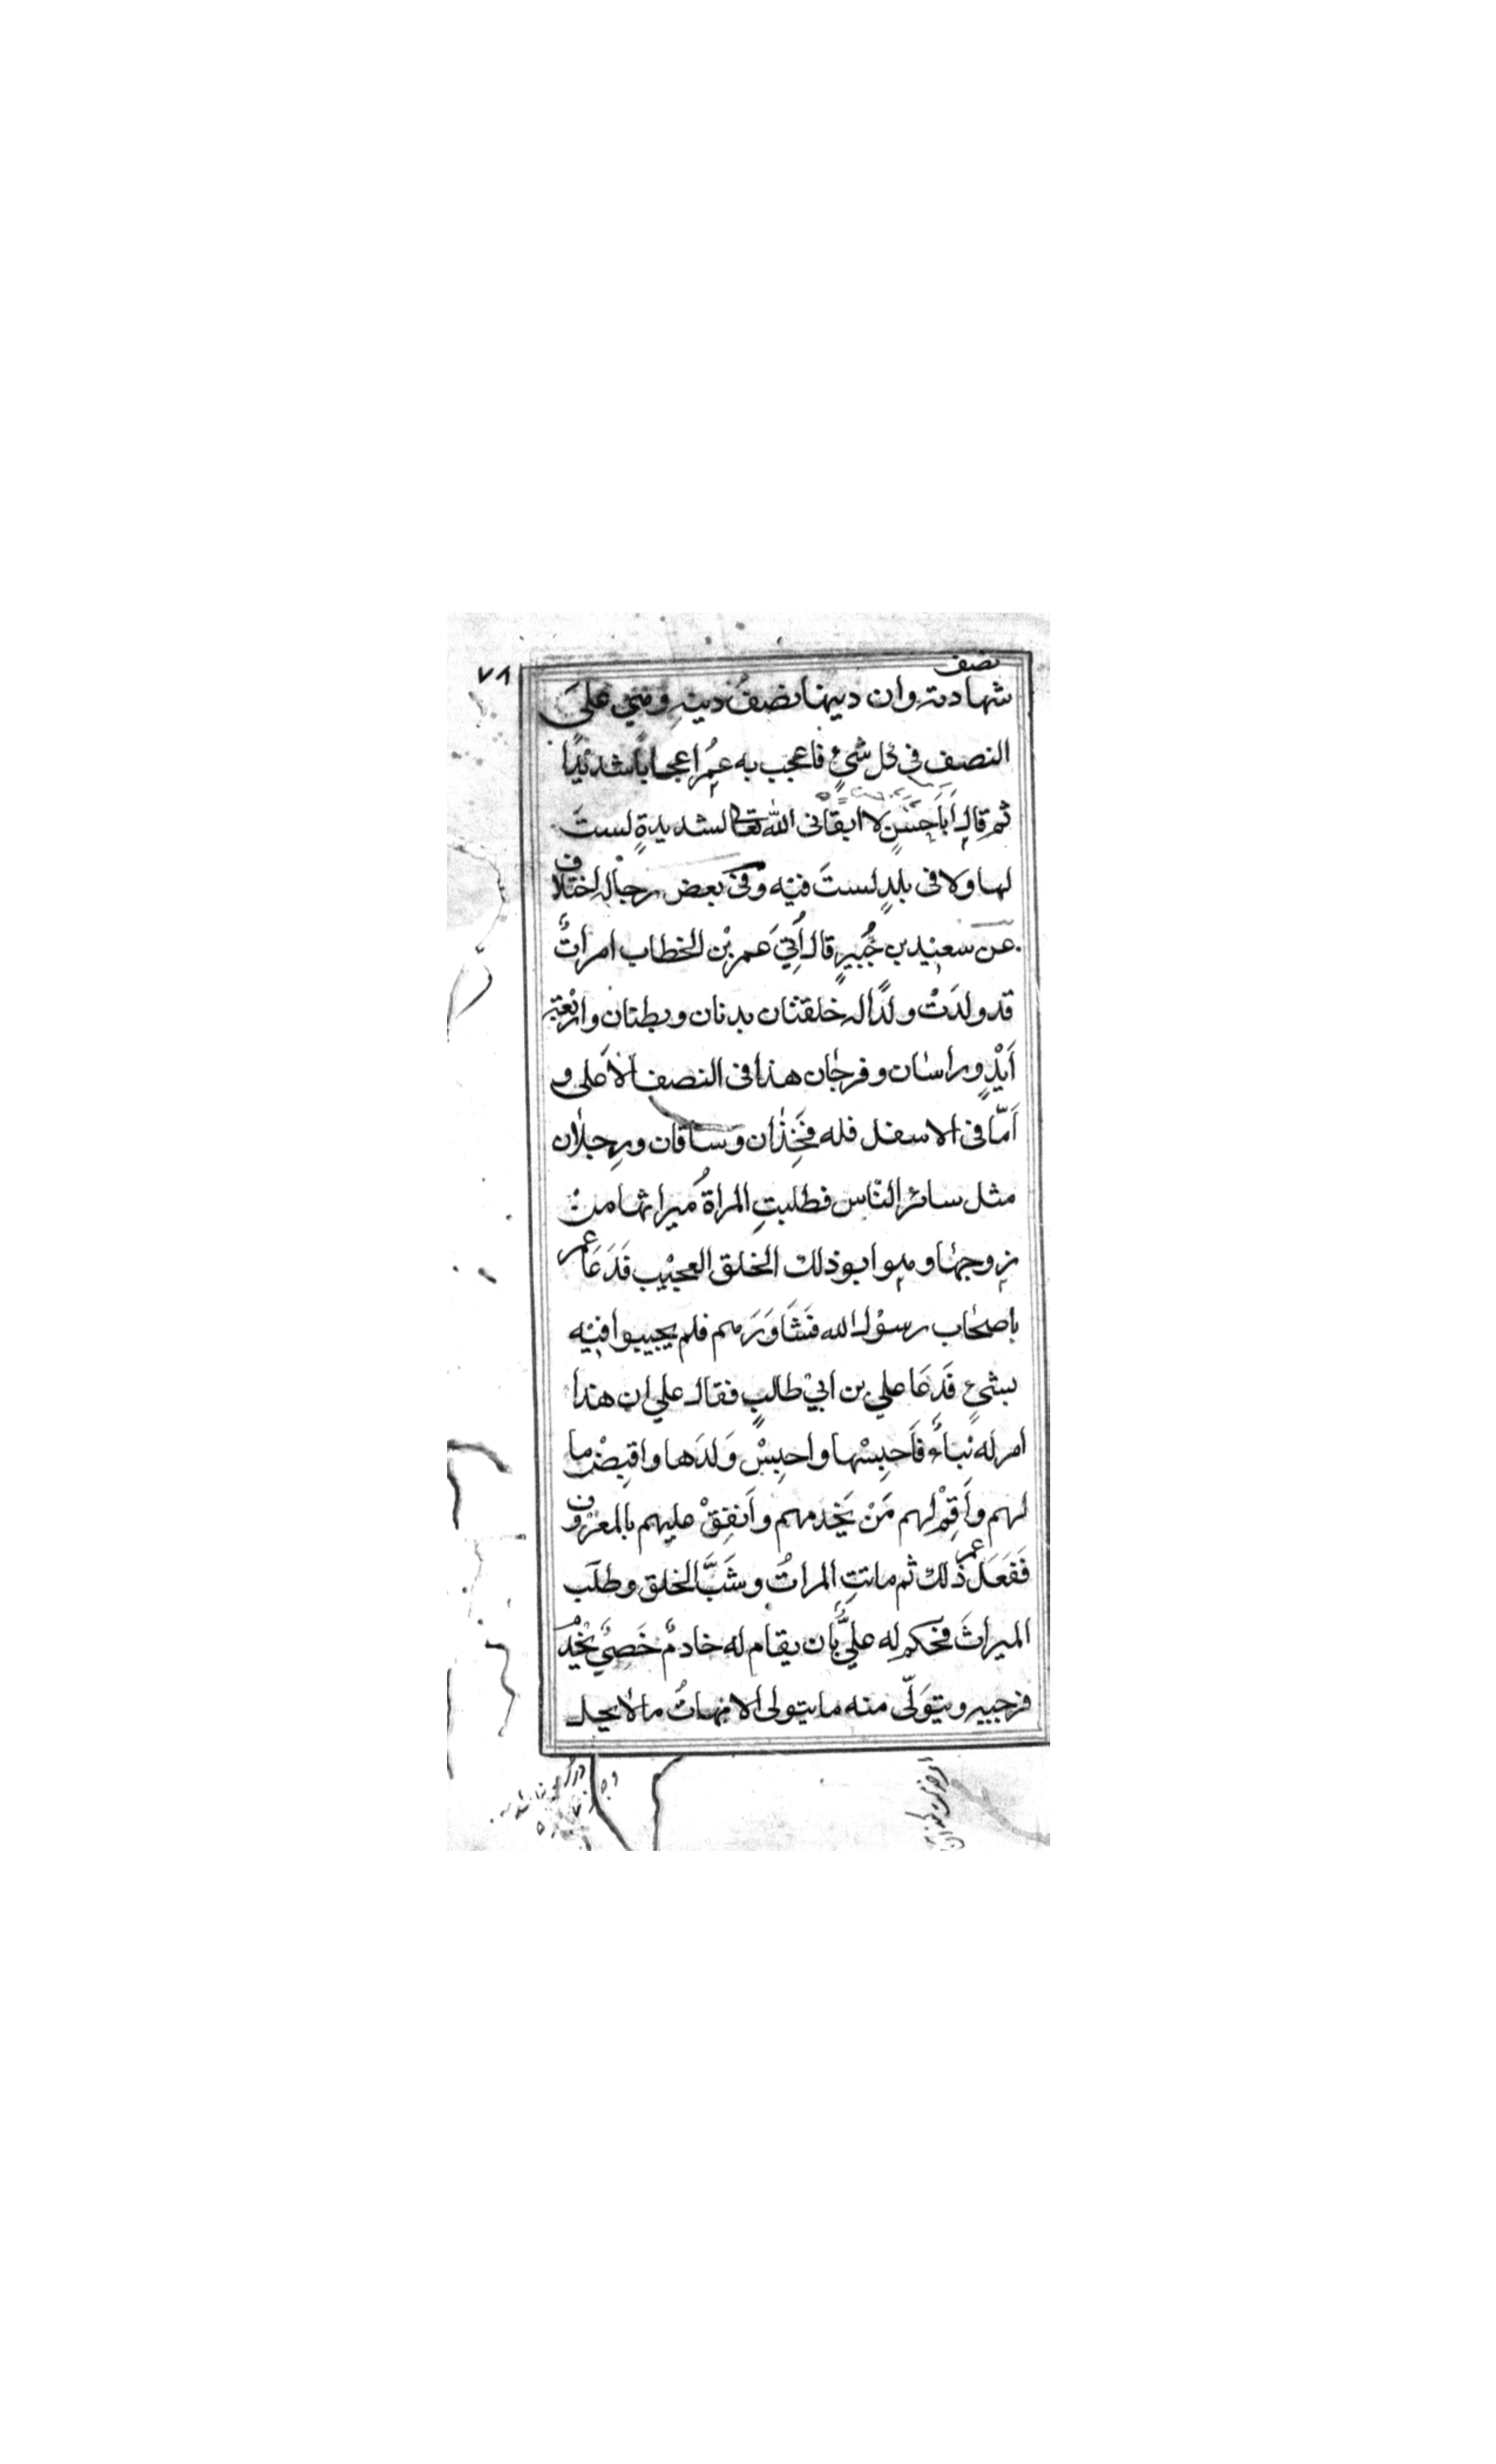 ٧٨
نصف
شهادته وان دينها نصفُ دينهِ وهي على
النصفِ في كل شيءٍ فاعجب به عمرُ اعجاباً شديدًا
ثم قال اَبَا حَسَنٍ لا ابقاني الله تعالى لشديدةٍ لستَ
لها ولا في بلدٍ لستَ فيه وفي بعض رجاله اختلاف
عن سعيد بن جُبيرٍ قال اُتِيَ عمر بْن الخطاب امراتٌ
قد ولدَتْ ولدًا له خلقتان بدنان وبطنان واربْعة
اَيْدٍ وراسان وفرجان هذا في النصف الاَعلى و
اَمّا في الاسفل فله فَخِذان وساقان ورجلان
مثل سائر النّاس فطلبتِ المراةُ ميراثها منْ
زوجها وهو ابو ذلك الخلق العجيْب فَدَعَا عمر
باصحاب رسوْل الله فَشَاوَرَهم فلم يجيبوا فيْه
بشيءٍ فَدعَا علي بن ابيْ طالبٍ فقال علي ان هذا
امر له نباءٌ فَاَحبِسْها واحبِسْ وَلدَها واقبِضْ ما
لهم واَقِمْ لهم مَنْ يَخدمهم واَنفِقْ عليهم بالمعرْوف
فَفَعَل عمر ذلك ثم ماتتِ المراتُ وشَبَّ الخلق وطلَب
الميراثَ فحكم له عليٌّ بان يقام له خادمٌ خَصِيٌ يَخْدُم
فرجيه ويتوَلّى منه ما يتولى الامهاتُ مالا يحل